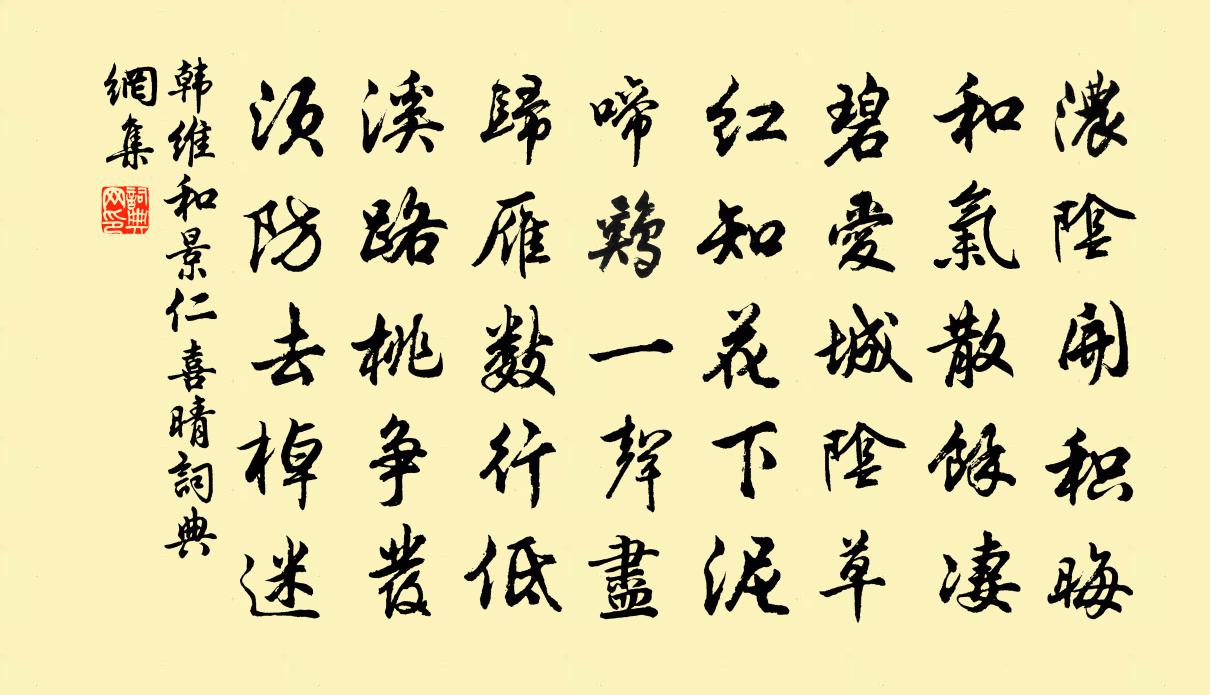 濃陰開积晦
和氣散餘凄
碧愛城陰草
紅知花下泥
啼鷄一聲盡
歸雁數行低
溪路桃爭發
须防去棹迷
韩維和景仁喜晴詞典
網集
詞典
网印